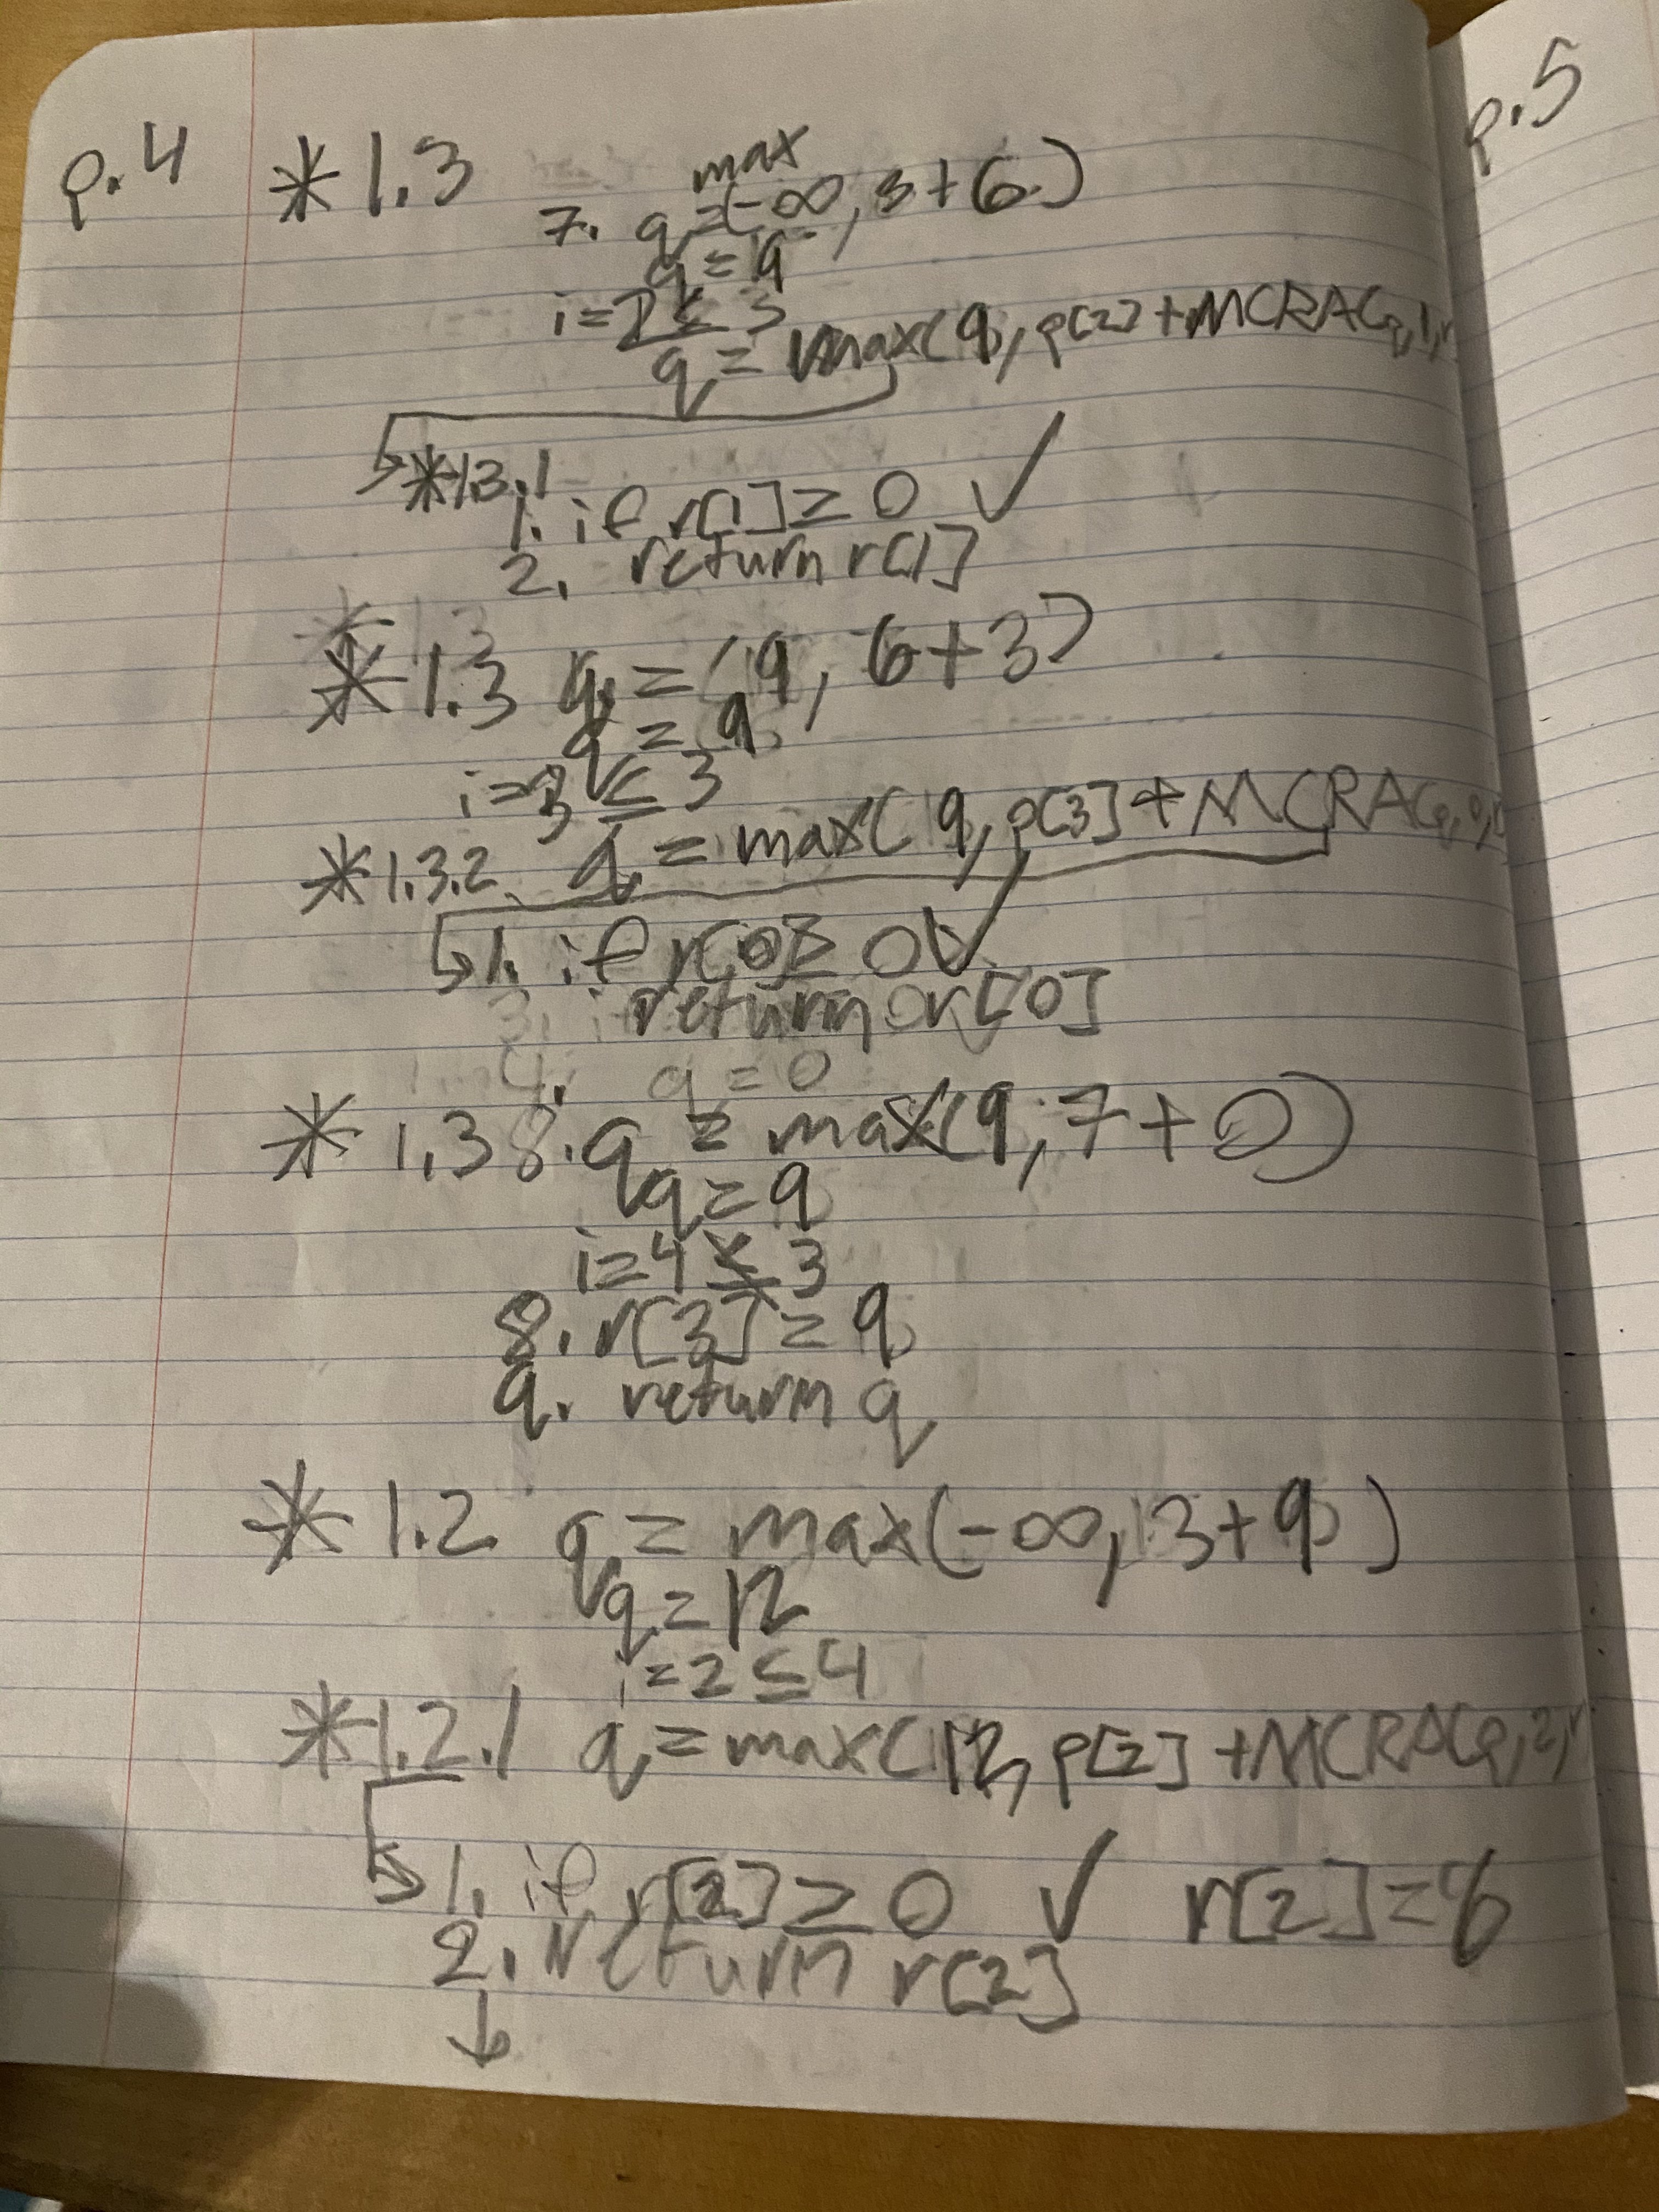 p.4
p.5
* 1.3
max
7. q=(-∞, 3+6)
q=9
i=2≤3
q = max(9, p[2]+MCRA(p,1,r
*1.3.1
1. if r[1] ≥ 0 ✓
2. return r[1]
* 1.3 q = (9, 6+3)
q = 9
i=3 ≤ 3
*1.3.2 q = max(9, p[3] + MCRA(p,0,
1. if r[0] ≥ 0 ✓
return r[0]
4. q=0
* 1.3 8. q = max(9, 7+0)
q=9
i=4 ≰ 3
8. r[3] = 9
9. return q
* 1.2 q = max(-∞, 3+9)
q = 12
i=2 ≤ 4
*1.2.1 q = max(12, p[2] + MCRA(p,2,r
1. if r[2] ≥ 0 ✓ r[2]=6
2. return r[2]
↓